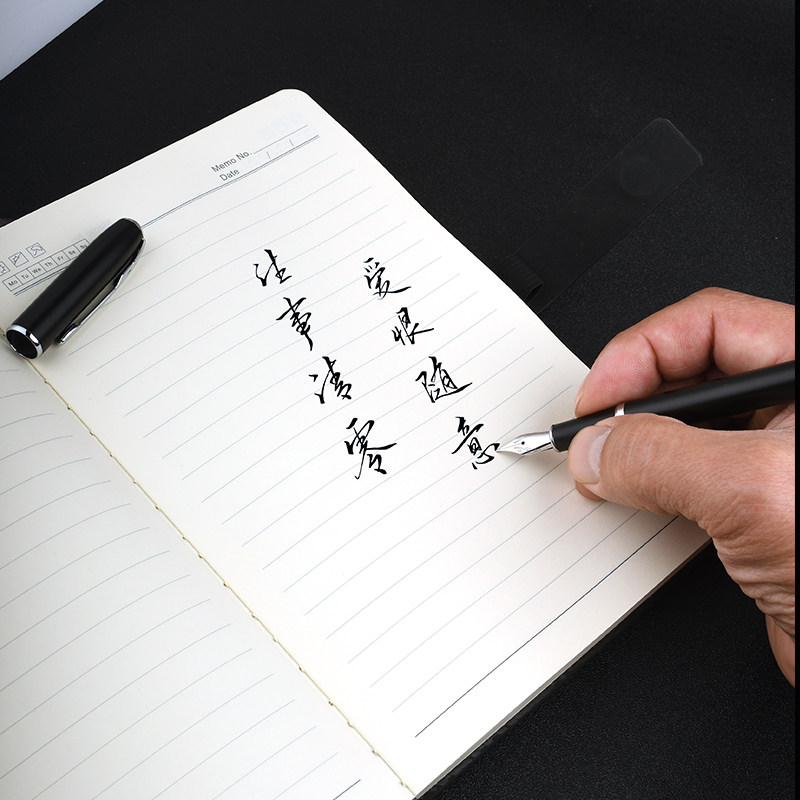 Memo No.
Date / /
Mo Tu We Th Fr Sa Su
往事清零
爱恨随意